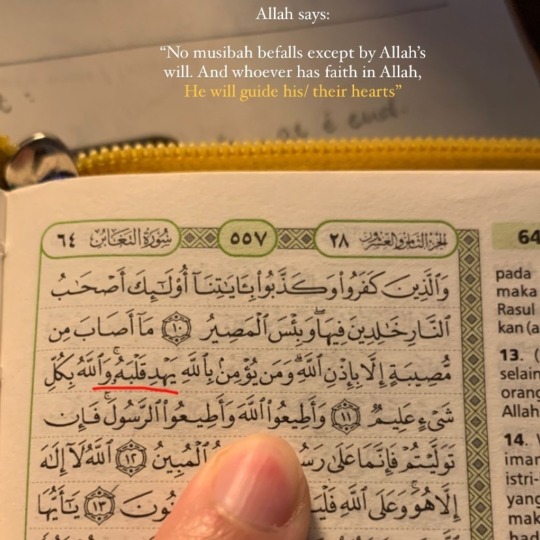 Allah says:
“No musibah befalls except by Allah’s
will. And whoever has faith in Allah,
He will guide his/ their hearts”
as i end.
٦٤ سُورَةُ التَّغَابُن
٥٥٧
الجزء الثامن والعشرون ٢٨
64
وَالَّذِينَ كَفَرُوا۟ وَكَذَّبُوا۟ بِـَٔايَـٰتِنَآ أُو۟لَـٰٓئِكَ أَصْحَـٰبُ
النَّارِ خَـٰلِدِينَ فِيهَا ۖ وَبِئْسَ الْمَصِيرُ ١٠ مَآ أَصَابَ مِن
مُّصِيبَةٍ إِلَّا بِإِذْنِ اللَّهِ ۗ وَمَن يُؤْمِنۢ بِاللَّهِ يَهْدِ قَلْبَهُۥ ۚ وَاللَّهُ بِكُلِّ
شَىْءٍ عَلِيمٌ ١١ وَأَطِيعُوا۟ اللَّهَ وَأَطِيعُوا۟ الرَّسُولَ ۚ فَإِن
تَوَلَّيْتُمْ فَإِنَّمَا عَلَىٰ الْمُبِينُ ١٢ اللَّهُ لَآ إِلَـٰهَ
إِلَّا هُوَ ۚ وَعَلَى اللَّهِ ١٣ يَـٰٓأَيُّهَا
pada
maka
Rasul
kan (a
13. (
selain
orang
Allah
14.
imar
istri-
yang
mak
had